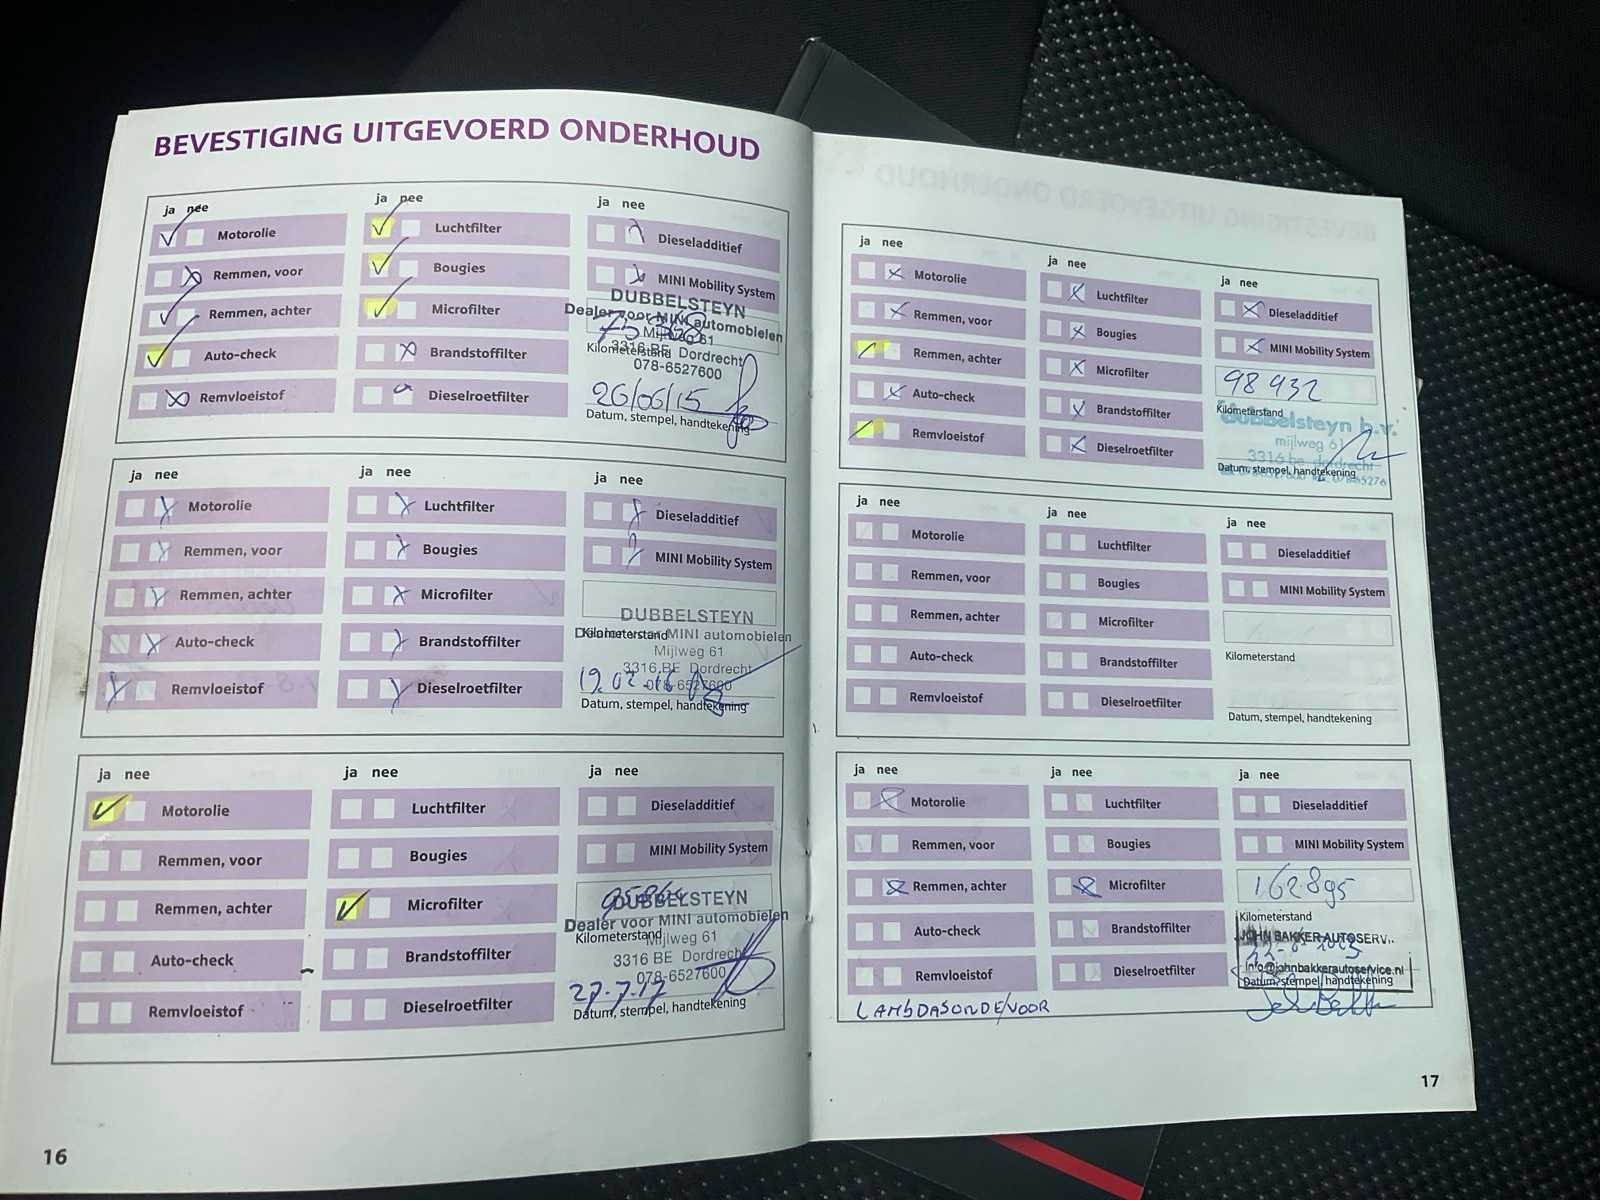 BEVESTIGING UITGEVOERD ONDERHOUD
ja nee
Motorolie
Remmen, voor
Remmen, achter
Auto-check
Remvloeistof
ja nee
Luchtfilter
Bougies
Microfilter
Brandstoffilter
Dieselroetfilter
ja nee
Dieseladditief
MINI Mobility System
DUBBELSTEYN
Dealer voor MINI automobielen
Mijlweg 61
Kilometerstand
3316 BE Dordrecht
078-6527600
26/06/15
Datum, stempel, handtekening
ja nee
Motorolie
Remmen, voor
Remmen, achter
Auto-check
Remvloeistof
ja nee
Luchtfilter
Bougies
Microfilter
Brandstoffilter
Dieselroetfilter
ja nee
Dieseladditief
MINI Mobility System
DUBBELSTEYN
Kilometerstand
Dealer voor MINI automobielen
Mijlweg 61
3316 BE Dordrecht
078-6527600
19.02.16
Datum, stempel, handtekening
ja nee
Motorolie
Remmen, voor
Remmen, achter
Auto-check
Remvloeistof
ja nee
Luchtfilter
Bougies
Microfilter
Brandstoffilter
Dieselroetfilter
ja nee
Dieseladditief
MINI Mobility System
DUBBELSTEYN
Dealer voor MINI automobielen
Kilometerstand
Mijlweg 61
3316 BE Dordrecht
078-6527600
27.7.17
Datum, stempel, handtekening
16
ja nee
Motorolie
Remmen, voor
Remmen, achter
Auto-check
Remvloeistof
ja nee
Luchtfilter
Bougies
Microfilter
Brandstoffilter
Dieselroetfilter
ja nee
Dieseladditief
MINI Mobility System
98 932
Kilometerstand
dubbelsteyn b.v.
mijlweg 61
3316 be dordrecht
Datum, stempel, handtekening
ja nee
Motorolie
Remmen, voor
Remmen, achter
Auto-check
Remvloeistof
ja nee
Luchtfilter
Bougies
Microfilter
Brandstoffilter
Dieselroetfilter
ja nee
Dieseladditief
MINI Mobility System
Kilometerstand
Datum, stempel, handtekening
ja nee
Motorolie
Remmen, voor
Remmen, achter
Auto-check
Remvloeistof
LAMBDASONDE/VOOR
ja nee
Luchtfilter
Bougies
Microfilter
Brandstoffilter
Dieselroetfilter
ja nee
Dieseladditief
MINI Mobility System
162.895
Kilometerstand
JOHN BAKKER AUTOSERV..
info@johnbakkerautoservice.nl
Datum, stempel, handtekening
17